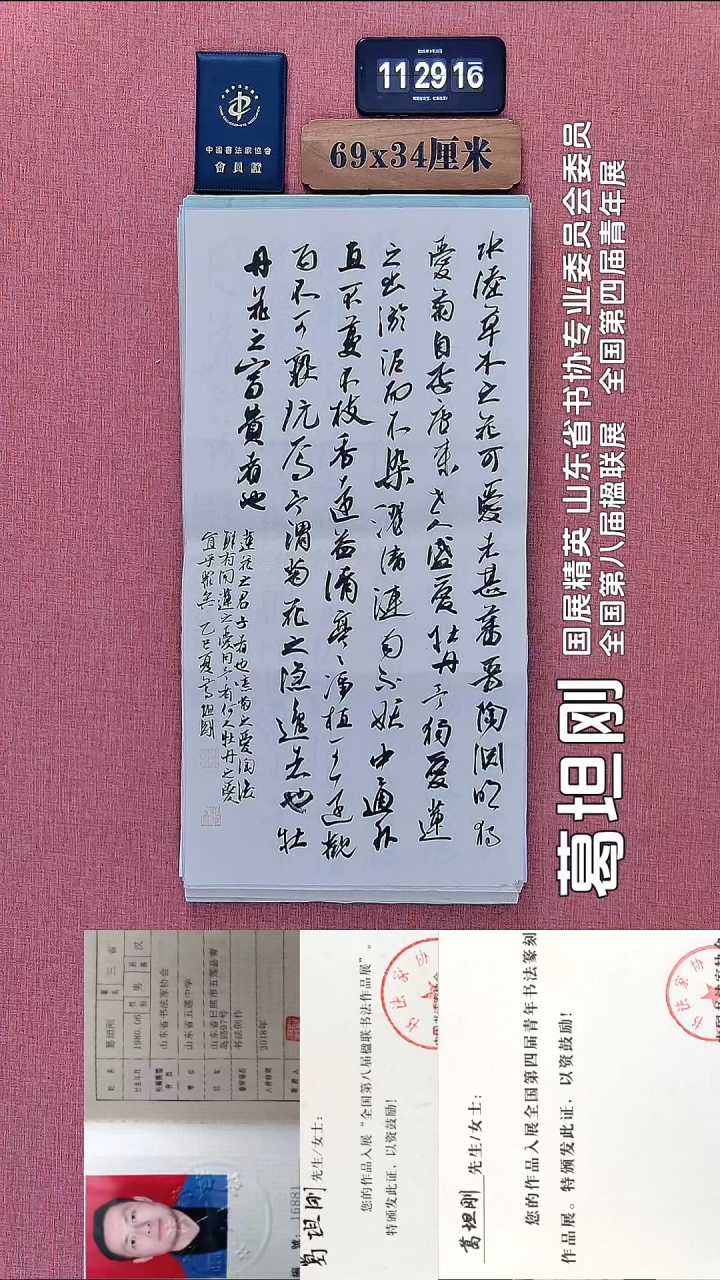 中國書法家協會
會員證
11 29 16
69x34厘米
水陸草木之花可愛者甚蕃晉陶渊明独
愛菊自李唐來世人盛愛牡丹予獨愛蓮
之出淤泥而不染濯清漣而不妖中通外
直不蔓不枝香遠益清亭〻淨植可遠觀
而不可褻玩焉予謂菊花之隱逸者也牡
丹花之富貴者也
蓮花之君子者也噫菊之愛陶後
鮮有聞蓮之愛同予者何人牡丹之愛
宜乎眾矣 乙巳夏葛坦刚
葛坦刚
国展精英 山东省书协专业委员会委员
全国第八届楹联展 全国第四届青年展
姓名 葛坦刚
1980.06
性别 男
汉
山东省书法家协会
山东省五莲中学
山东省日照市五莲县青
岛路97号
书法创作
2018年
編 號: 16881
葛坦刚 先生/女士:
您的作品入展“全国第八届楹联书法作品展”。
特颁发此证,以资鼓励!
葛坦刚 先生/女士:
您的作品入展全国第四届青年书法篆刻
作品展。特颁发此证,以资鼓励!